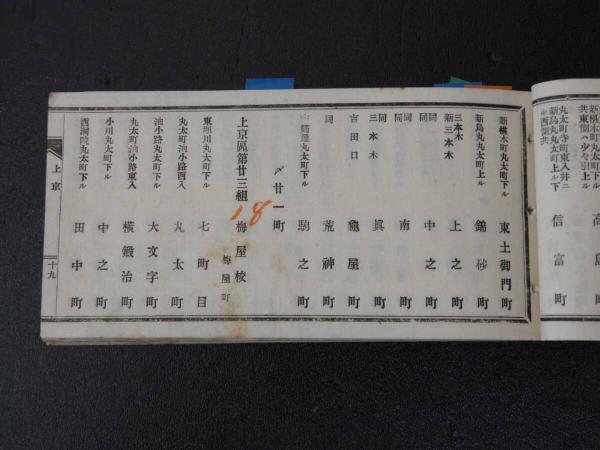 高島町
丸太町寺町東入井ニ
新烏丸丸太町上ル下
ル西側共
信富町
新椹木町丸太町下ル 東土御門町
新烏丸丸太町上ル 錦砂町
三本木
新三本木 上之町
同 中之町
同 南町
三本木 眞町
吉田口 龜屋町
同 荒神町
丸太町下ル 駒之町
〆廿一町
上京區第廿三組 梅屋校
18
梅屋町
東堀川丸太町下ル 七町目
丸太町油小路西入 丸太町
油小路丸太町下ル 大文字町
丸太町油小路東入 橫鍛冶町
小川丸太町下ル 中之町
西洞院丸太町下ル 田中町
上京
十九